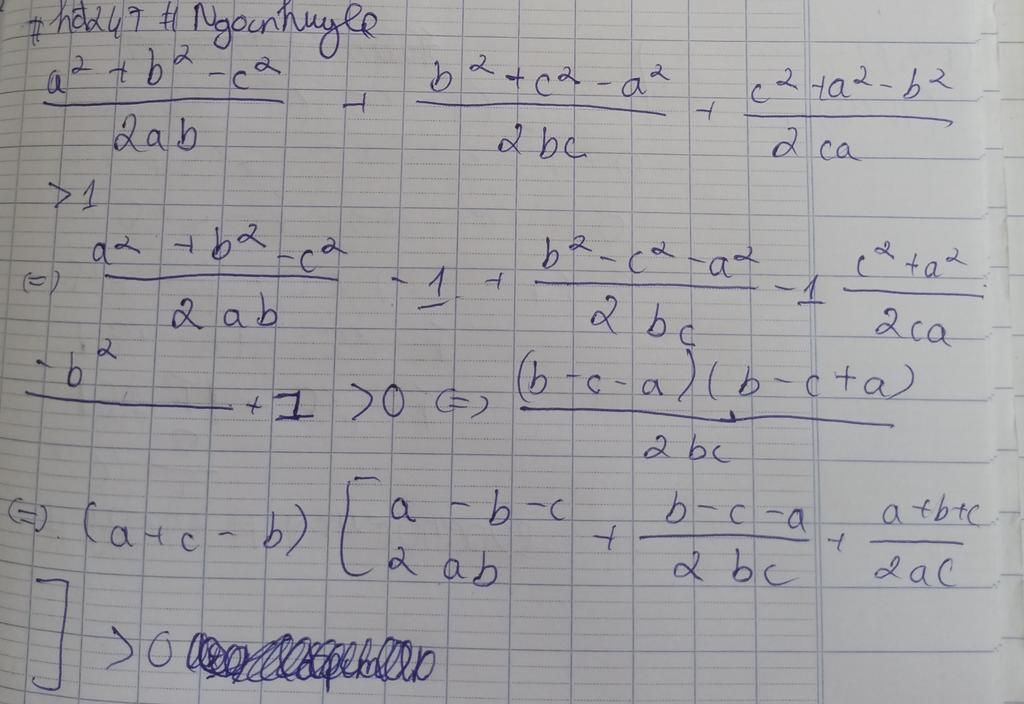 #hd247 # Ngocnhuyle
\frac{a² + b² - c²}{2ab} + \frac{b² + c² - a²}{2bc} + \frac{c² + a² - b²}{2ca}
> 1
<=> \frac{a² + b² - c²}{2ab} - 1 + \frac{b² - c² - a²}{2bc} - 1 \frac{c² + a²}{2ca}
\frac{- b²}{} + 1 > 0 <=> \frac{(b - c - a)(b - c + a)}{2bc}
<=> (a + c - b) [ a - b - c 2ab + \frac{b - c - a}{2bc} + \frac{a + b + c}{2ac}
] > 0